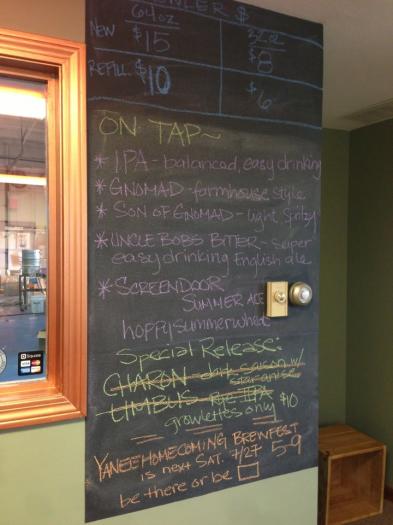 GROWLER $
64oz 32oz
NEW $15 $8
REFILL $10 $6
ON TAP~
* IPA - balanced, easy drinking
* GNOMAD - farmhouse style
* SON OF GNOMAD - light, Spritzy
* UNCLE BOBS BITTER - super
easy drinking English ale
* SCREENDOOR
SUMMER ALE
hoppy summer wheat
Special Release:
CHARON - dark saison w/
staranise
LIMBUS - rye IPA
growlettes only $10
YANEE HOMECOMING BREWFEST
is next SAT. 7/27 5-9
be there or be
Square
VISA